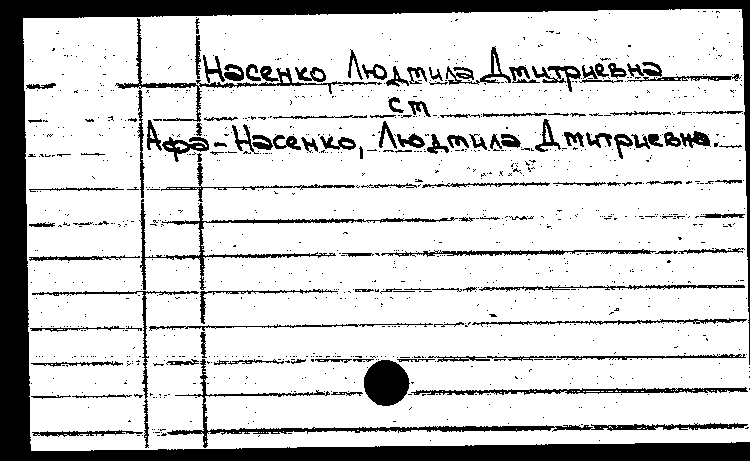 Насенко, Людмила Дмитриевна
ст
Афа-Насенко, Людмила Дмитриевна.